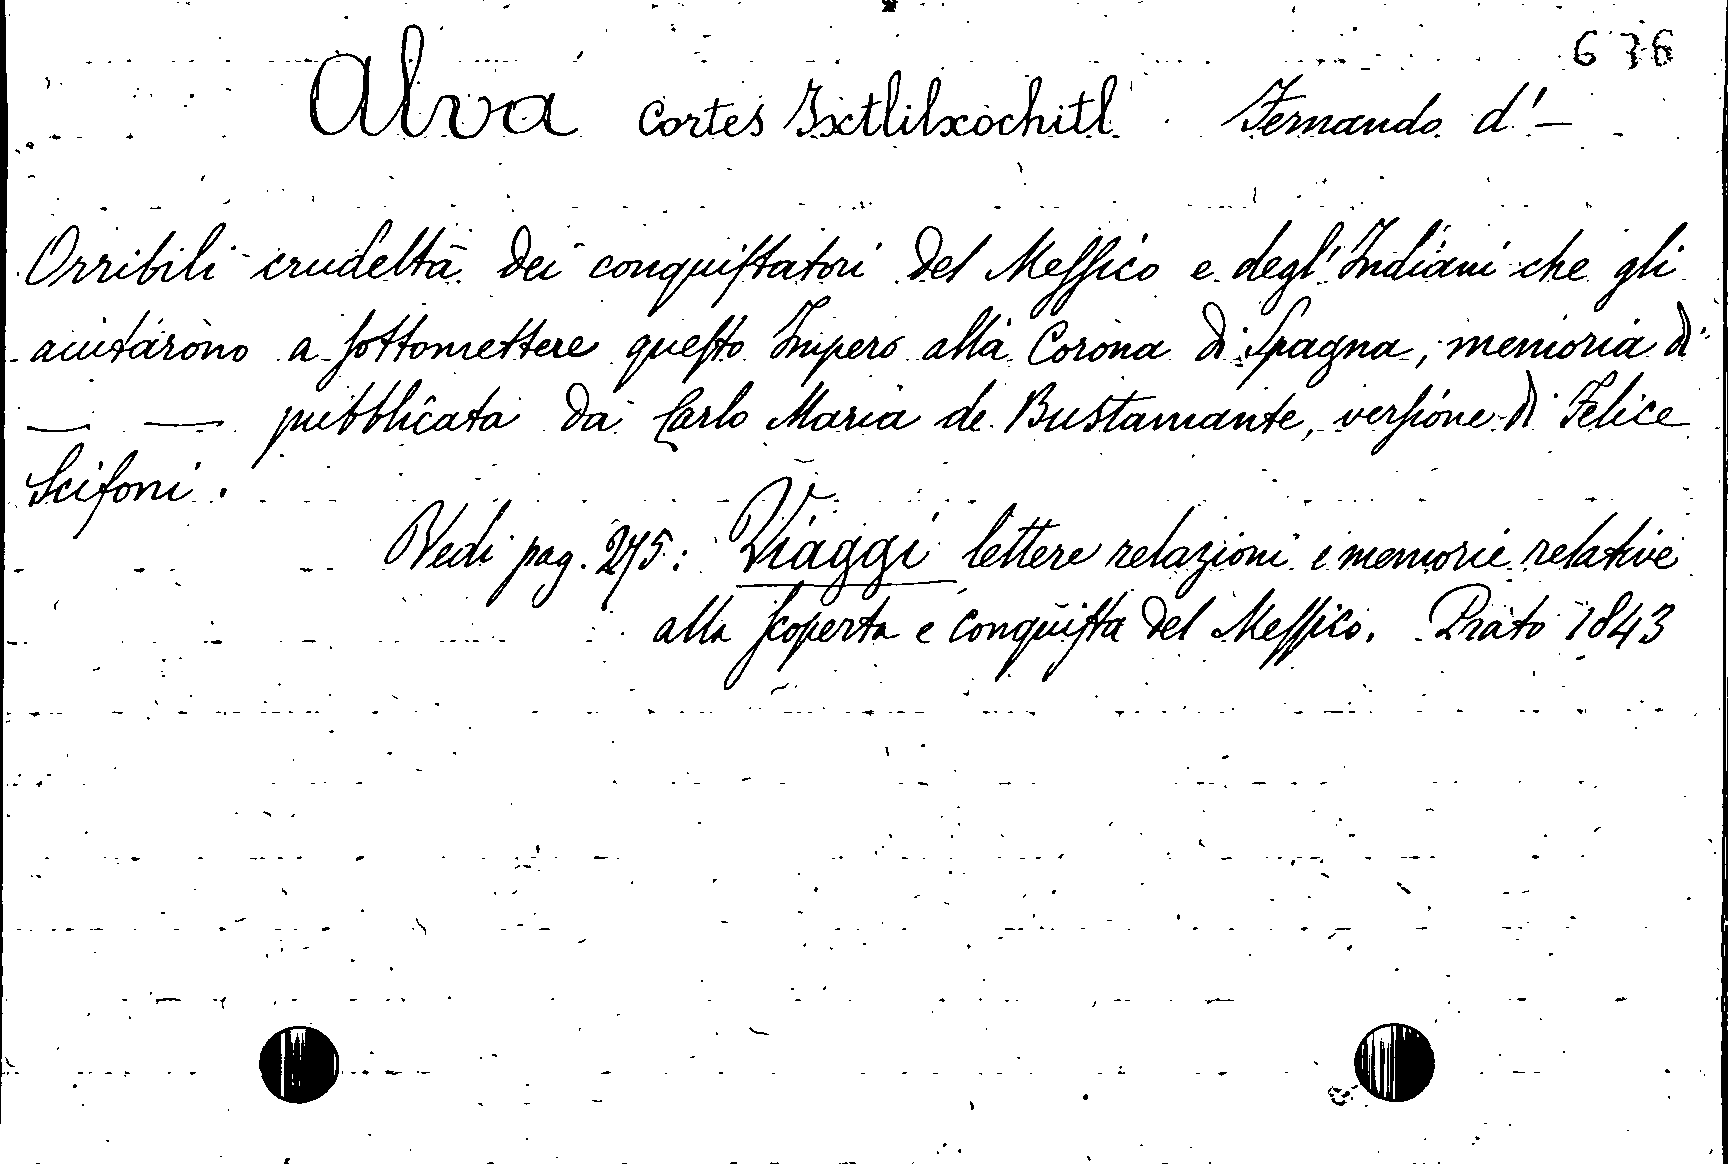 676
Alva Cortes Ixtlilxochitl Fernando d'—
Orribili crudeltà dei conquistatori del Messico e degl'Indiani che gli
aiutarono a sottomettere questo Impero alla Corona di Spagna, memoria di
— — pubblicata da Carlo Maria de Bustamante, versione di Felice
Scifoni.
Vedi pag. 275: Viaggi lettere relazioni e memorie relative
alla scoperta e conquista del Messico. Prato 1843